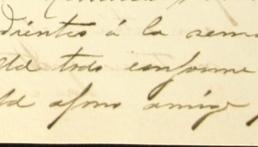 dientes á la sema
de todo conforme
afmo amigo